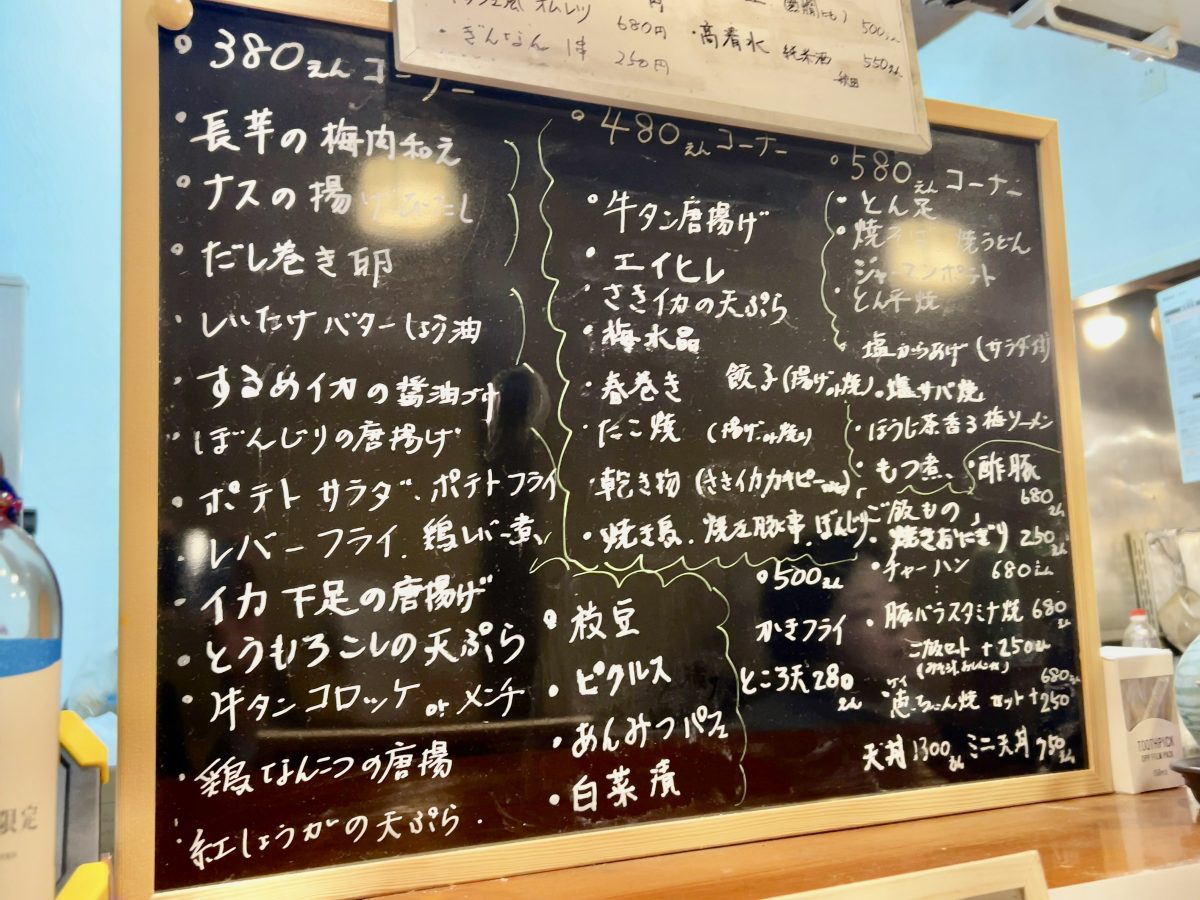 オムレツ 680円
・ぎんなん 1本 250円
500えん
・高清水 純米酒 550えん
秋田
380えんコーナー
長芋の梅肉和え
ナスの揚げびたし
だし巻き卵
しいたけバターしょう油
するめイカの醤油づけ
ぼんじりの唐揚げ
ポテトサラダ、ポテトフライ
レバーフライ、鶏レバー煮
イカ下足の唐揚げ
とうもろこしの天ぷら
牛タンコロッケorメンチ
鶏なんこつの唐揚
紅しょうがの天ぷら
480えんコーナー
牛タン唐揚げ
エイヒレ
さきイカの天ぷら
梅水晶
春巻き
餃子(揚げor焼)
たこ焼 (揚げor焼)
乾き物 (さきイカカキピー
焼き鳥、焼き豚串、ぼんじり
枝豆
ピクルス
あんみつパフェ
白菜漬
580えんコーナー
とん足
焼そば 焼うどん
ジャーマンポテト
とん平焼
塩からあげ(サラダ付)
塩サバ焼
ほうじ茶香る梅ソーメン
もつ煮、
酢豚 680えん
500えん
かきフライ
ところ天280えん
ご飯もの
焼きおにぎり 250えん
チャーハン 680えん
豚バラスタミナ焼 680
ご飯セット +250えん
(みそ汁、おしんこ)
恵ちゃん焼 680えん
ケイ
セット+250
天丼1300えん ミニ天丼950えん
限定
TOOTHPICK